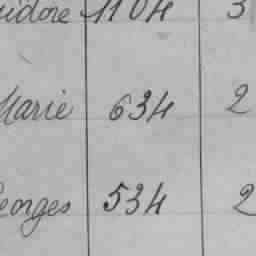 idore 1104 3
Marie 634 2
eorges 534 2